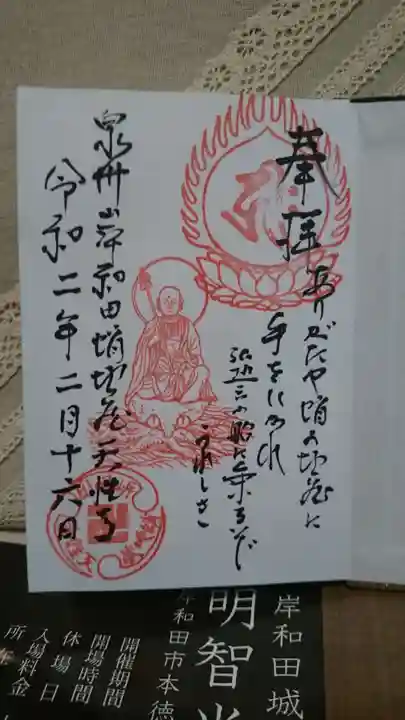 奉拝
ありがたや蛸の地蔵に
手をひかれ
弘誓の船に乗るぞ
うれしさ
泉州岸和田蛸地蔵天性寺
令和二年二月十六日
岸和田城
明智光
岸和田市本徳
開催期間
開場時間
休場日
入場料金
所在